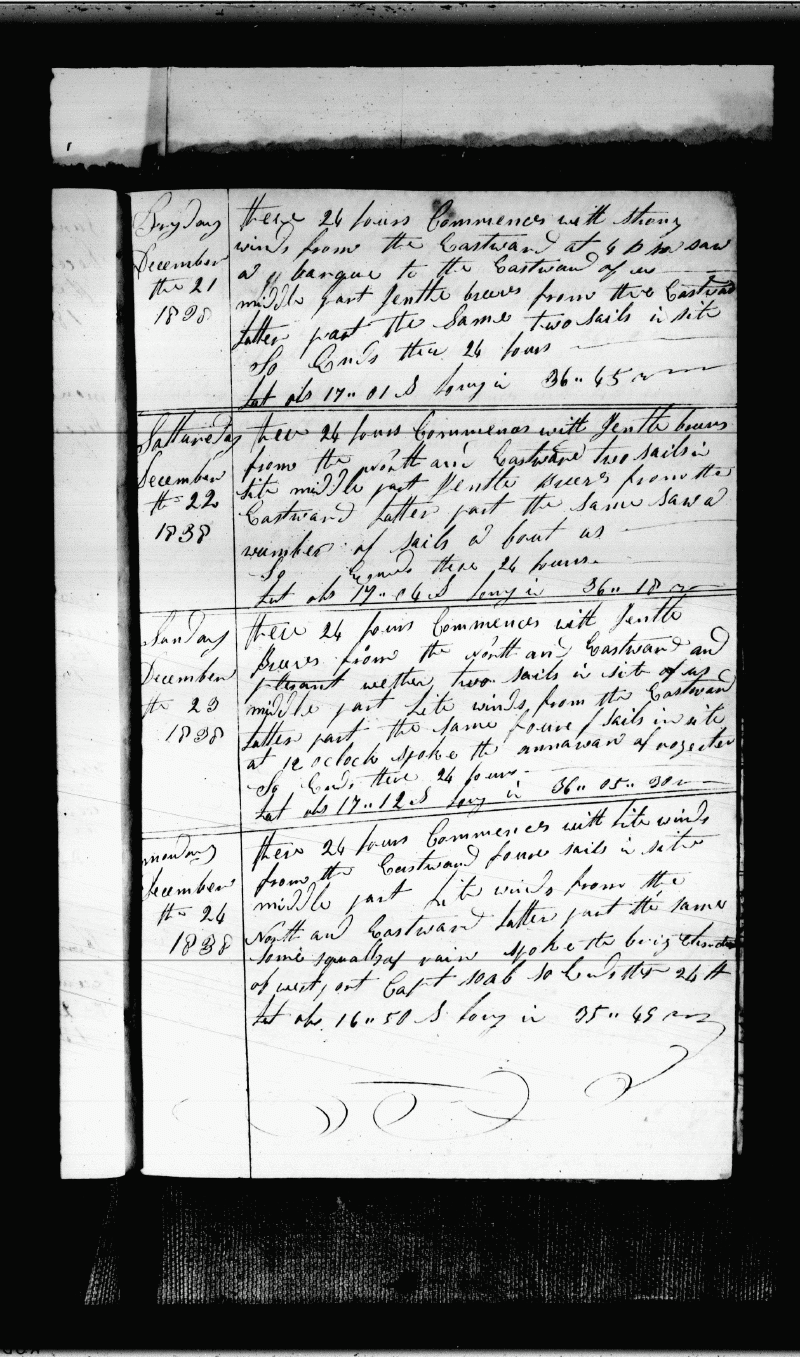 Fryday
December
the 21
1838
these 24 hours Commences with strong
winds from the Eastward at 4 p m saw
a barque to the Eastward of us
middle part Jentle breses from the Eastward
latter part the Same two sails in site
So Ends these 24 hours
Lat obs 17" 01 S Long in 36" 45
Satturday
December
the 22
1838
these 24 hours Commences with Jentle breses
from the North and Eastward two sails in
site middle part Jentle breses from the
Eastward latter part the same saw a
number of sails a bout us
So Ends these 24 hours
Lat obs 17" 04 S Long in 36" 18
Sunday
December
the 23
1838
these 24 hours Commences with Jentle
Breses from the North and Eastward and
plesant wether two sails in site of us
middle part Lite winds from the Eastward
latter part the same foure sails in site
at 12 oclock spoke the annawan of
So Ends these 24 hours
Lat obs 17" 12 S Long in 36" 05" 30
monday
December
the 24
1838
these 24 hours Commences with Lite winds
from the Eastward foure sails in site
middle part Lite winds from the
North and Eastward latter part the same
some squalls of rain spoke the brig
of westport Capt So Ends these 24 h
Lat obs 16" 50 S Long in 35" 49